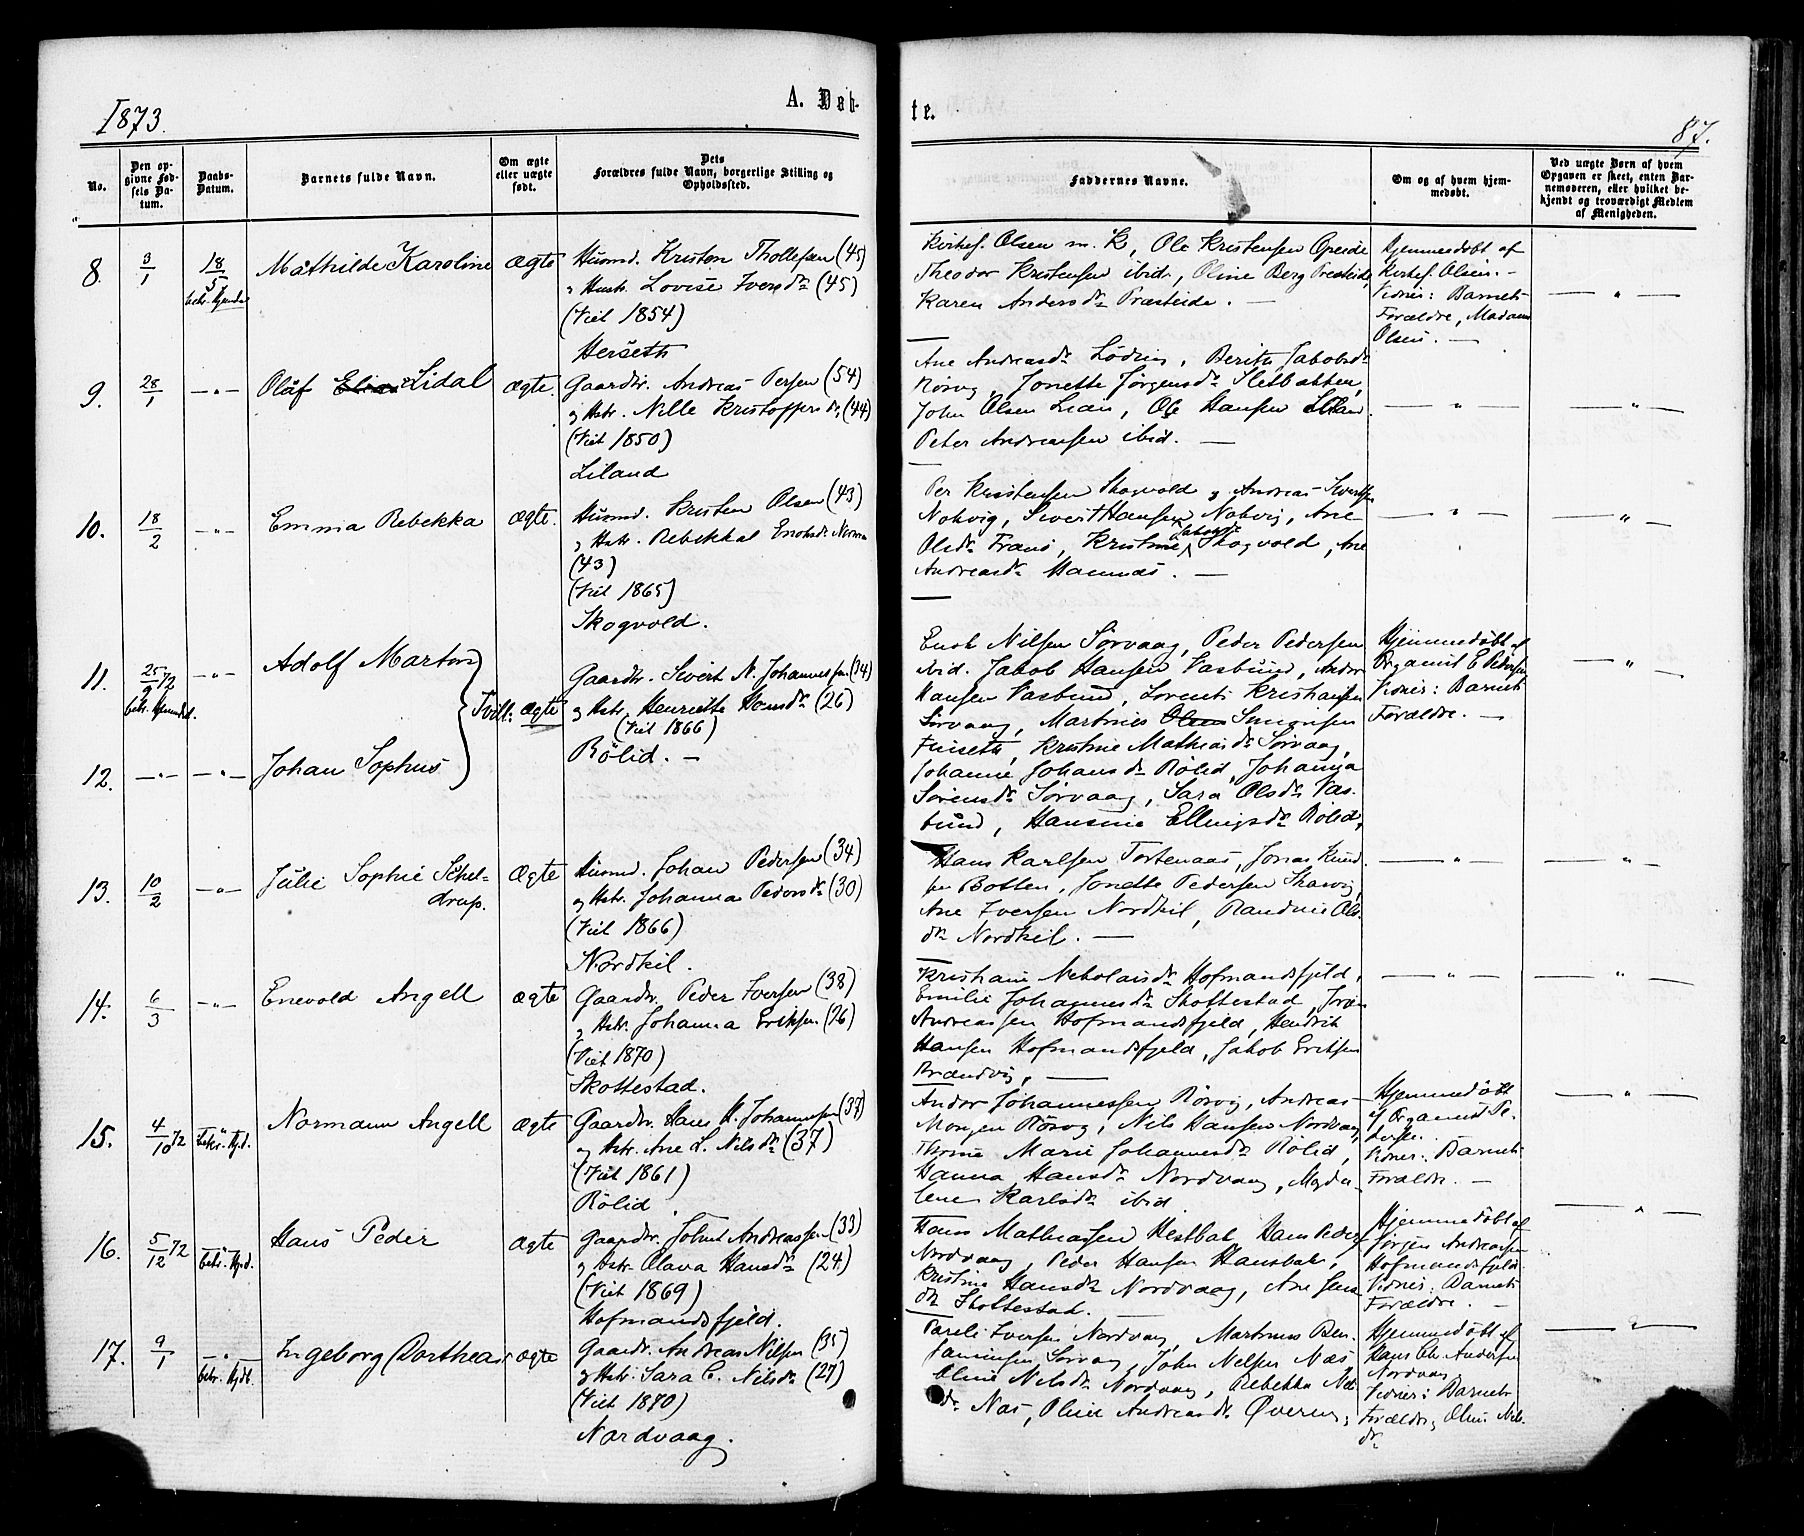 1873.
A. Døb-
te.
87.
No.
Den op-
givne Fød-
sels Da-
tum.
Daabs-
Datum.
Barnets fulde Navn.
Om ægte
eller uægte
født.
Dets
Forældres fulde Navn, borgerlige Stilling og
Opholdssted.
Faddernes Navne.
Om og af hvem hjem-
medøbt.
Ved uægte Børn af hvem
Opgaven er skeet, enten Bar-
nemoderen, eller hvilket be-
kjendt og troværdigt Medlem
af Menigheden.
8. 3/1 18/5 Mathilde Karoline ægte
Husmd. Kristen Thollefsen (45)
Hustr. Lovise Iversdr (45)
(Viet 1854)
Herseth
Kirkes. Olsen m. K, Ole Kristensen
Theodor Kristensen ibid., Oline Berg
Karen Andersdr Præsteide. —
Hjemmedøbt af
Kirkes. Olsen. —
Vidner: Barnets
Forældre, Madame
Olsen. —
9. 28/1 — " — Olaf Lidal ægte.
Gaardbr. Andreas Persen (54)
og Hstr. Nille Kristoffersdr (44)
(Viet 1850)
Liland
Ane Andreasdr Løding, Berith Jakobsdr
Rørvig, Jonette Jørgensdr Sletbakken,
John Olsen Lian, Ole Hansen
Peter Andreassen ibid. —
10. 18/2 — " — Emma Rebekka ægte.
Husmd. Kristen Olsen (43)
og Hstr. Rebekka Enoksdr
(43)
(Viet 1865)
Skogvold.
Per Kristensen Skogvold og Andreas Sivertsen
Nakvig, Sivert Hansen Nakvig, Ane
Olsdr , Kristine Jakobsdr Skogvold, Ane
Andreasdr . —
11. 25/9 72 — " — Adolf Martin
Tvill: ægte
Gaardbr. Sivert N. Johannessen (34)
og Hstr. Henriette Hansdr (26)
(Viet 1866)
Rölid. —
12. — " — — " — Johan Sophus
Enok Nilsen Sørvaag, Peder Pedersen
ibid. Jakob Hansen Vasbund, Andor
Hansen Vasbund, Lorents Kristiansen
Sørvaag, Martines Simonsen
Finseth, Kristine Mathiasdr Sørvaag,
Johanne Johansdr Rölid, Johanna
Sørensdr Sørvaag, Sara Olsdr Vas-
bund, Hansine Ellingsdr Rölid,
Hjemmedøbt af
Organist E. Pedersen
Vidner: Barnets
Forældre. —
13. 10/2 — " — Julie Sophie Schel-
drup.
Ægte
Husmd. Johan Pedersen (34)
og Hstr. Johanna Pedersdr (30)
(Viet 1866)
Nordkil.
Hans Karlsen Tortenaas, Jonas Knud-
sen Botten, Jonette Pedersen
Ane Iversen Nordkil, Randine Ols-
dr Nordkil. —
14. 6/3 — " — Enevold Angell ægte
Gaardbr. Peder Iversen (38)
og Hstr. Johanna Eriksen (26)
(Viet 1870)
Skottestad.
Kristiane Nikolaisdr Hofmandsfjeld,
Emilie Johannesdr Skottestad,
Andreassen Hofmandsfjeld, Hendrik
Hansen Hofmandsfjeld, Jakob Eriksen
Brændvig, —
15. 4/10 72 Normann Angell ægte
Gaardbr. Hans H. Johannessen (37)
og Hstr. Ane L. Nilsdr (37)
(Viet 1861)
Rölid.
Andor Johannessen Rørvig, Andreas
Monsen Rørvig, Nils Hansen Nordvaag,
Marie Johannesdr Rölid,
Hanna Hansdr Nordvaag, Magda-
lene Karlsdr ibid
Hjemmedøbt
af Organist Pe-
dersen.
Vidner: Barnets
Forældre. —
16. 5/12 72 Hans Peder ægte
Gaardbr. Johnt Andreassen (33)
og Hstr. Olava Hansdr (24)
(Viet 1869)
Hofmandsfjeld.
Hans Mathiassen Hestbak, Hans Peders.
Nordvaag, Peder Hansen Hansbak,
Kristine Hansdr Nordvaag, Ane Jens-
dr Skottestad.
Hjemmedøbt af
Jørgen Andreassen
Hofmandsfjeld
Vidner: Barnets
Forældre. —
17. 9/1 — " — Ingeborg Dorthea ægte
Gaardbr. Andreas Nilsen (35)
og Hstr. Sara C. Nilsdr (27)
(Viet 1870)
Nordvaag.
Pareli Iversen Nordvaag, Martinus Ben-
jaminsen Sørvaag, John Nilsen Næs
Oline Nilsdr Nordvaag, Rebekka Nils-
dr Næs, Oline Andreasdr
Hjemmedøbt af
Hans Chr. Andersen
Nordvaag
Vidner: Barnets
Forældre, Oline Nils-
dr